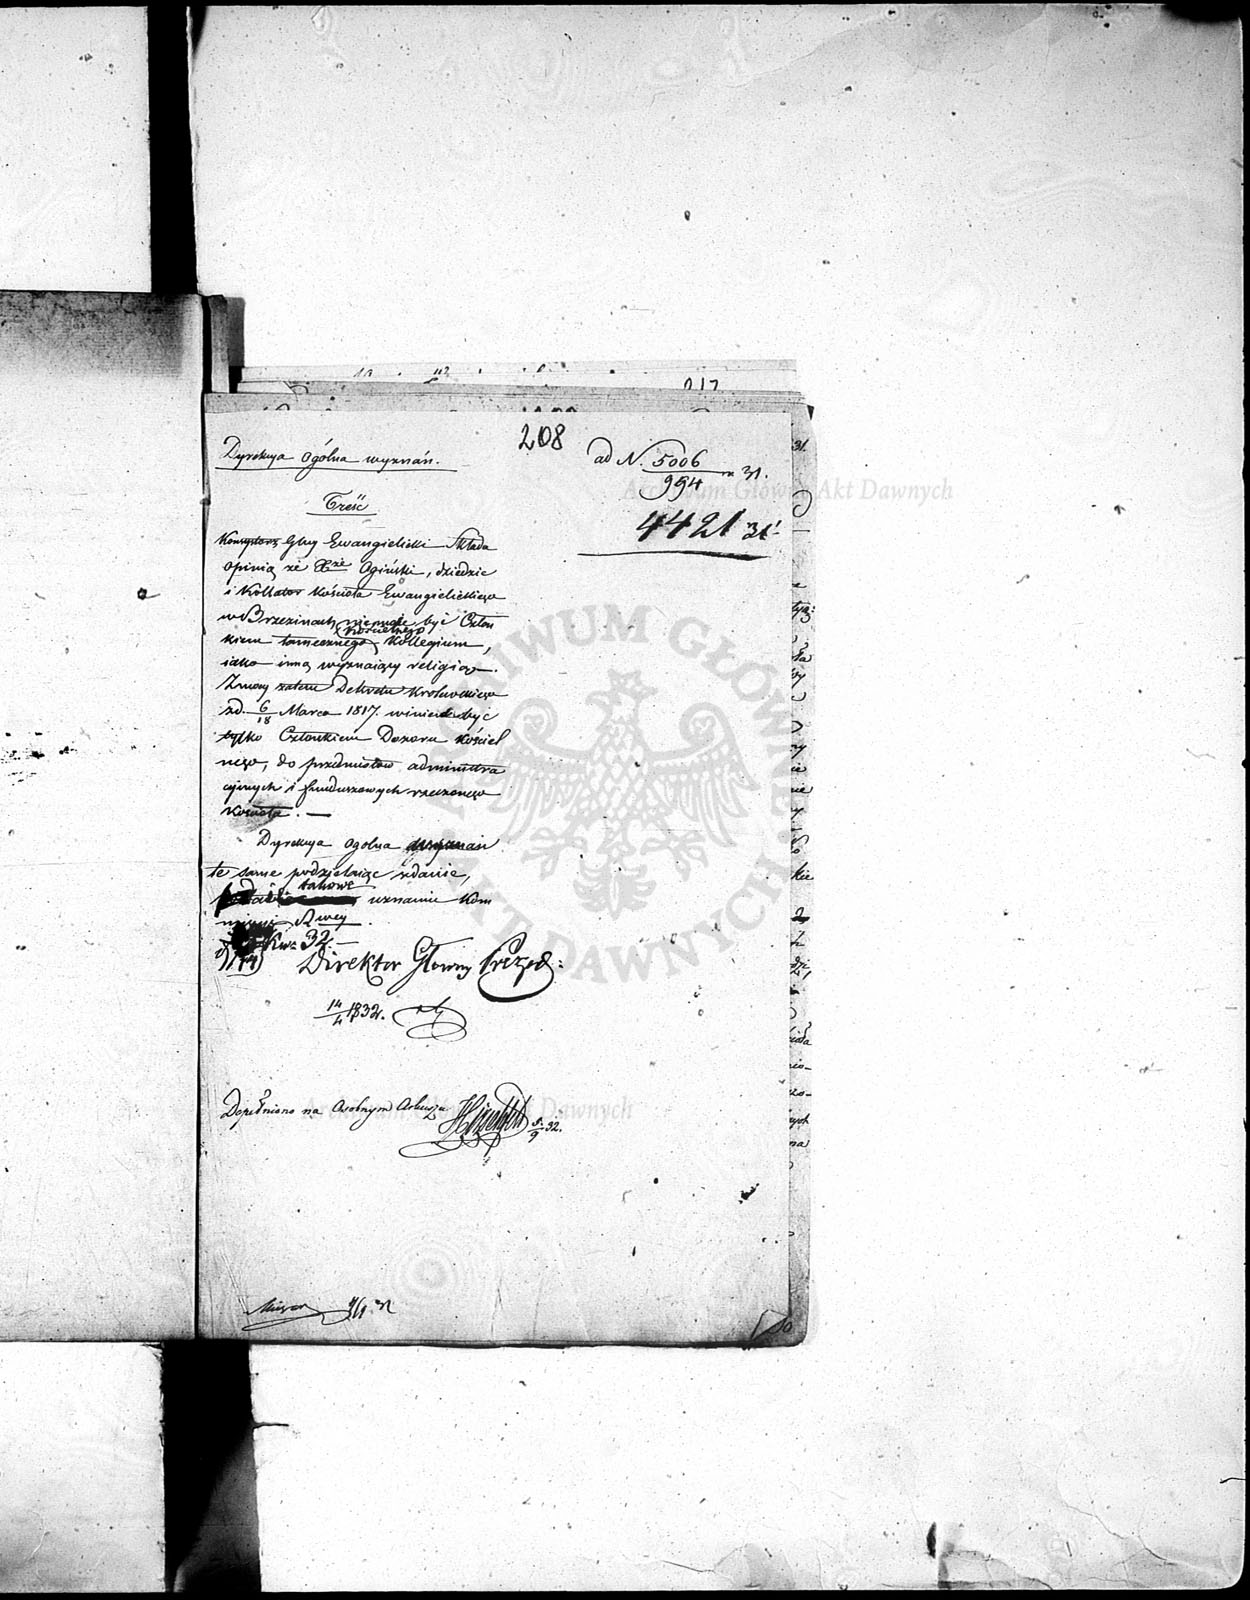 208
Dyrekcya Ogólna wyznań.
ad N. 5006
994 r. 31.
4421 31
Treść
Konsystorz Głny Ewangielicki Składa
opinią że Xże Ogiński, dziedzic
i Kollator Kościoła Ewangielickiego
w Brzezinach niemoże być Człon
kiem tamecznego Kościelnego Kollegium,
iako inną wyznaiący religią.
Zmocy zatem Dekretu Krolewskiego
zd. 6/18 Marca 1817. winien być
tylko Członkiem Dozoru Kościel
nego, do przedmiotow administra
cyinych i funduszowych rzeczonego
Kościoła. —
Dyrekcya Ogolna wyznań
te same podzielaiąc zdanie,
takowe
uznaniu Kom
missyi Rwey.
Kw. 32. —
Direktor Głowny Prezyd:
14/4 1832.
Dopełniono na Osobnym Arkuszu
5/9 32.
Archiwum Główne Akt Dawnych
ARCHIWUM GŁÓWNE AKT DAWNYCH
Archiwum Główne Akt Dawnych